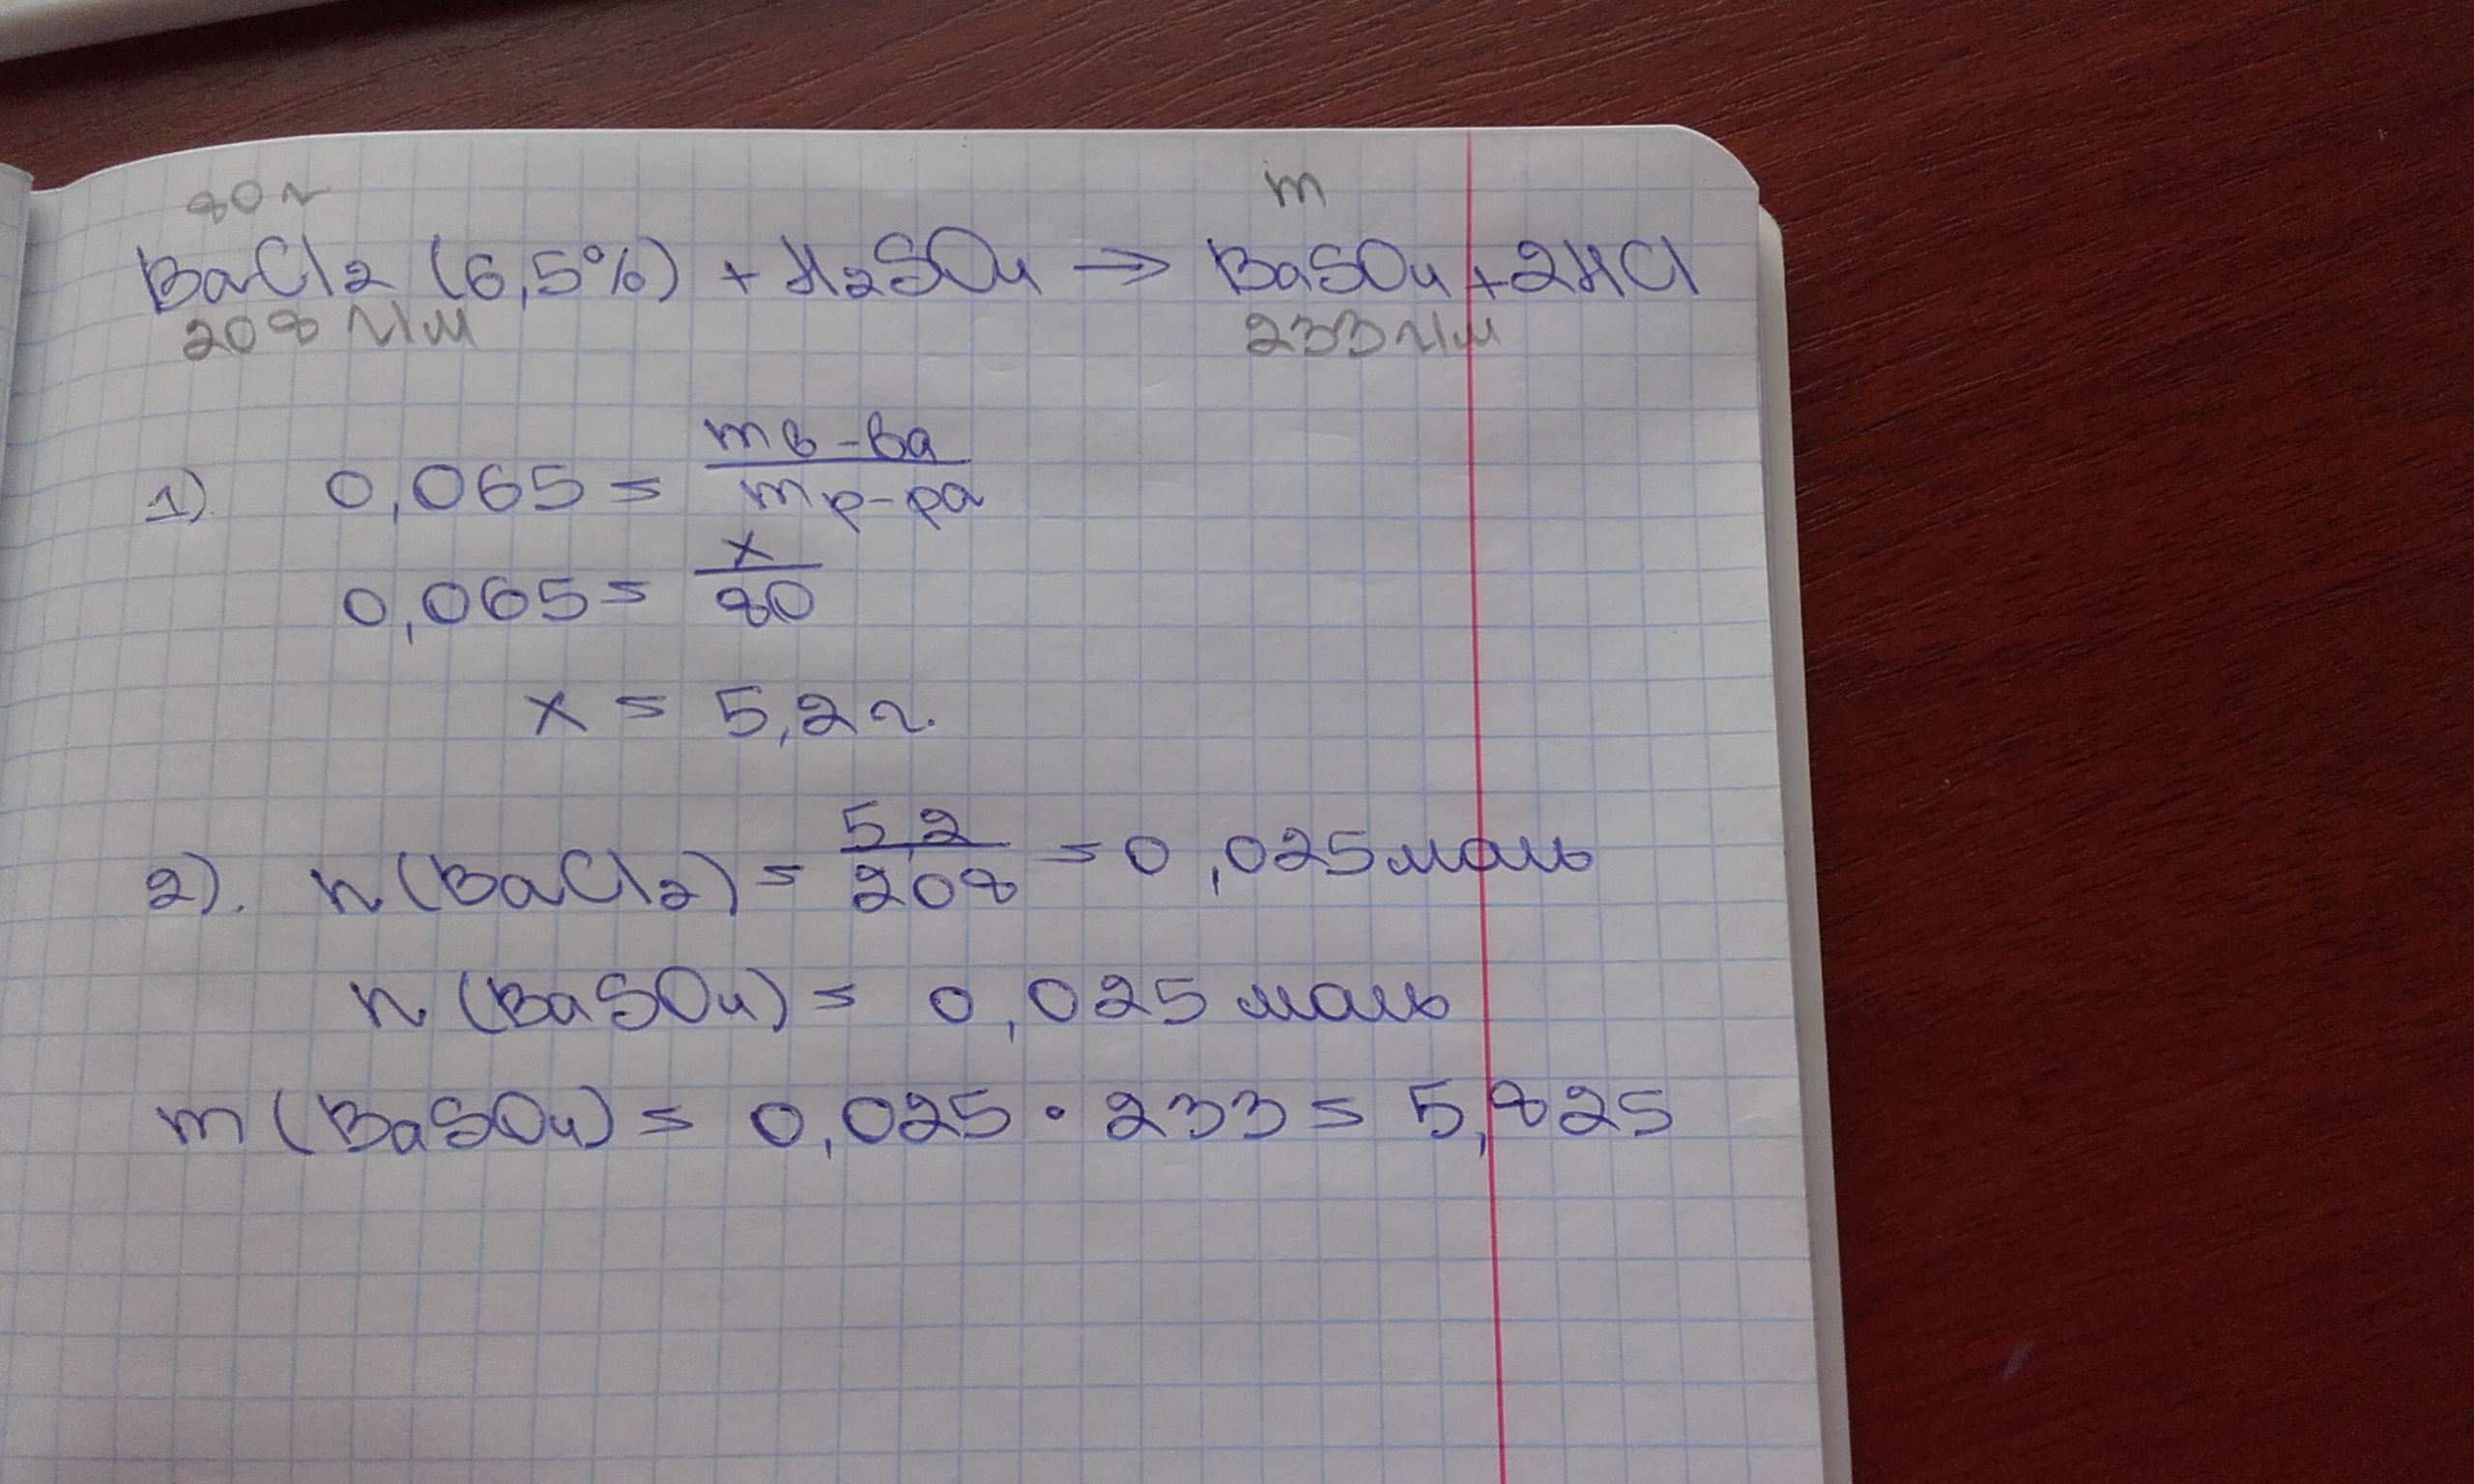 80 г m
BaCl2 (6,5%) + H2SO4 → BaSO4 + 2HCl
208 г/м 233 г/м
1). 0,065 = m в-ва / m р-ра
0,065 = x / 80
x = 5,2 г.
2). n (BaCl2) = 5,2 / 208 = 0,025 моль
n (BaSO4) = 0,025 моль
m (BaSO4) = 0,025 · 233 = 5,825